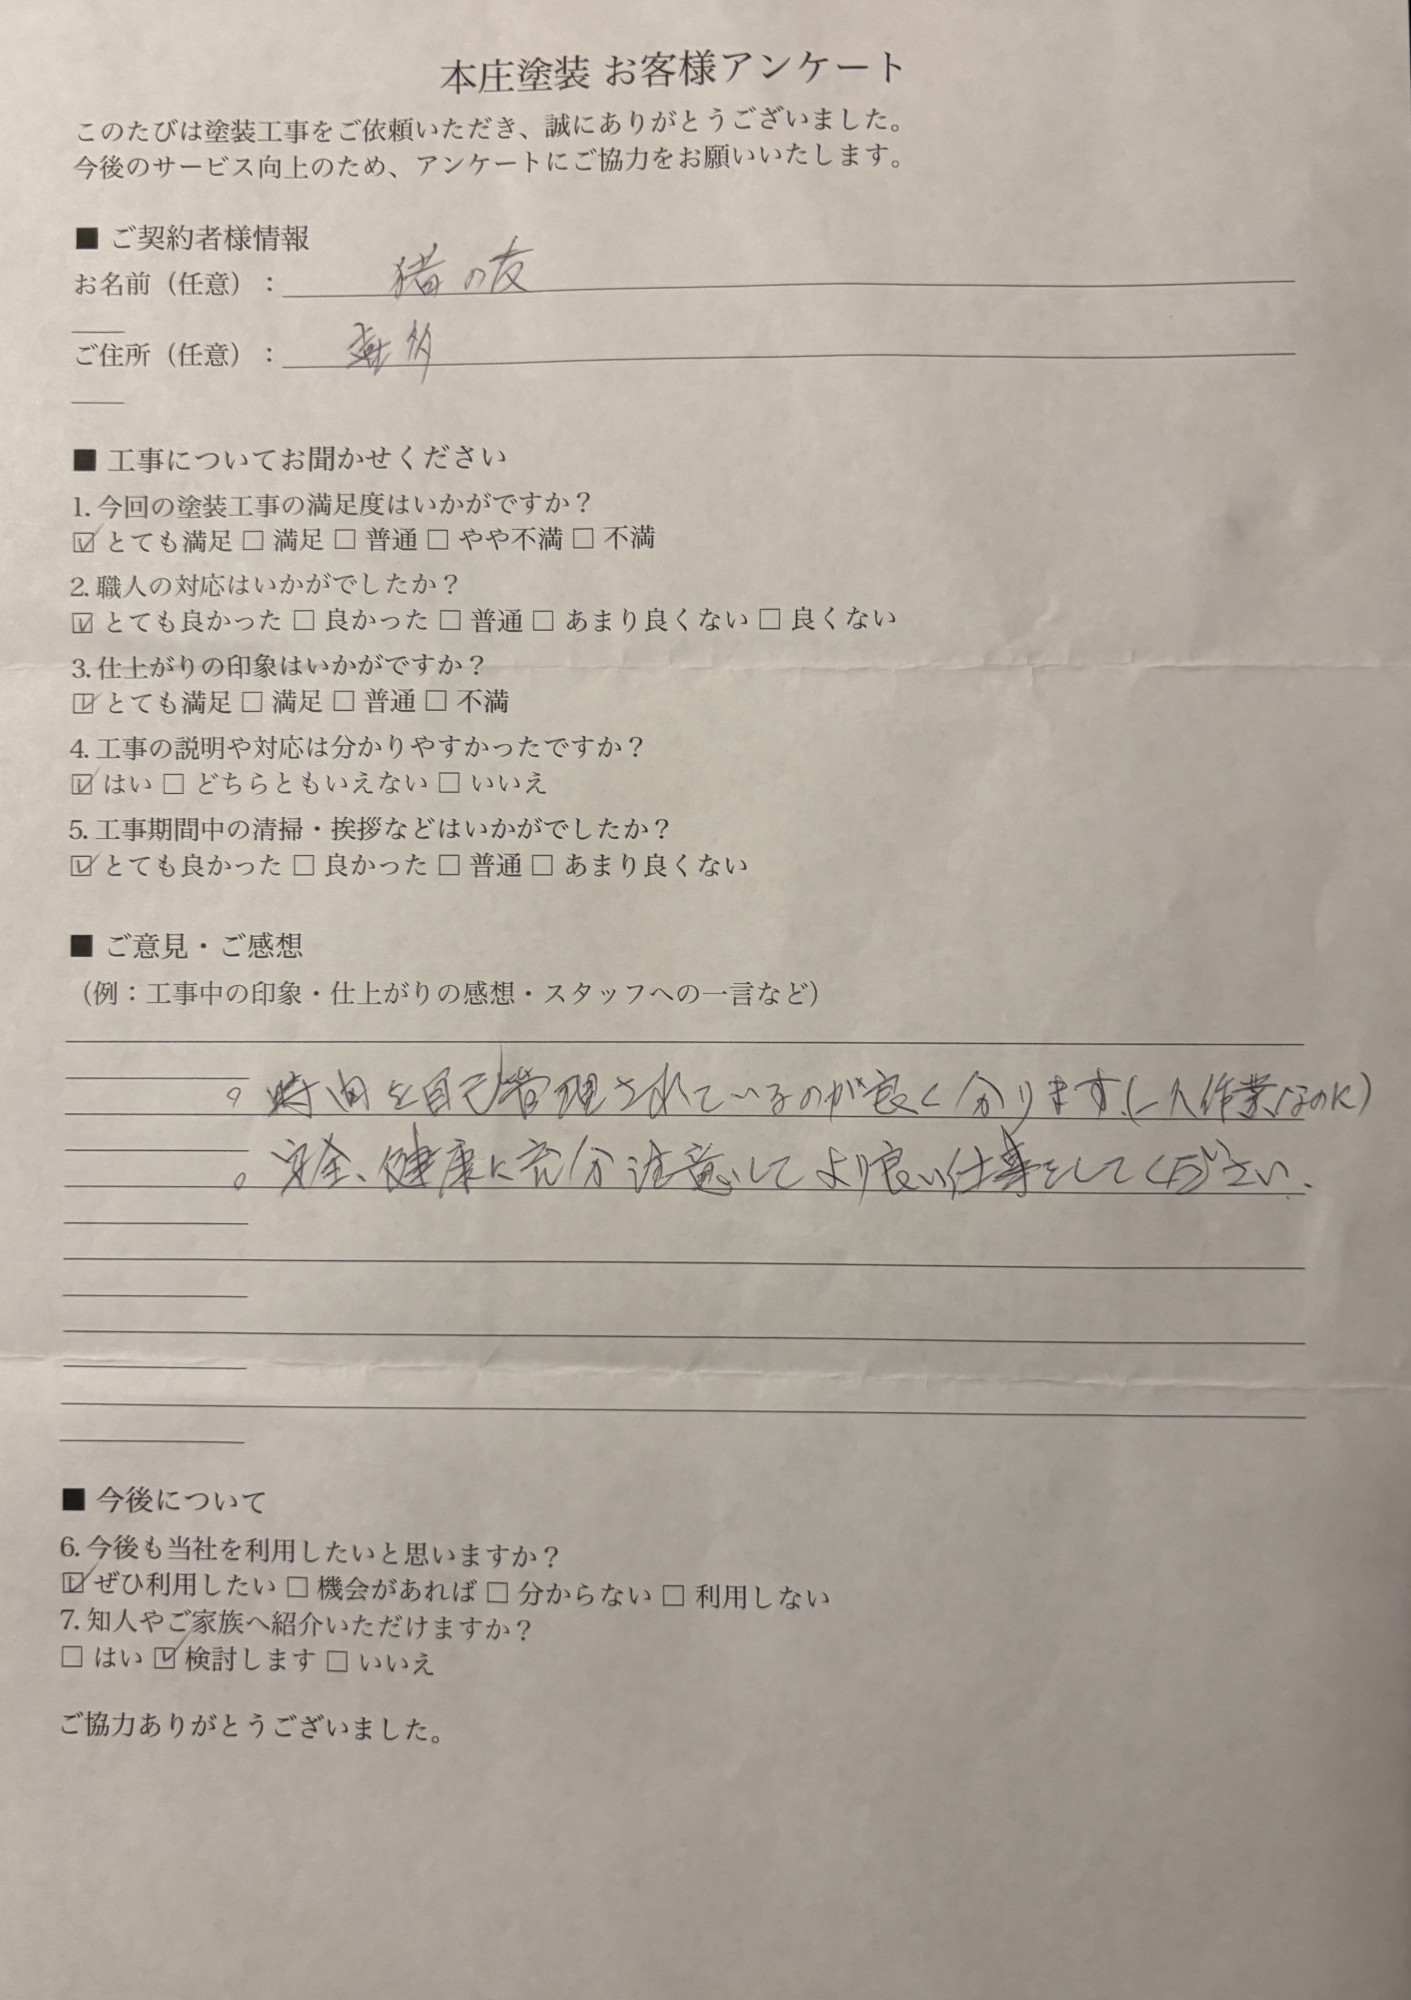 本庄塗装 お客様アンケート
このたびは塗装工事をご依頼いただき、誠にありがとうございました。
今後のサービス向上のため、アンケートにご協力をお願いいたします。
■ ご契約者様情報
お名前（任意）： 猪の友
ご住所（任意）：
■ 工事についてお聞かせください
1. 今回の塗装工事の満足度はいかがですか？
☑ とても満足 □ 満足 □ 普通 □ やや不満 □ 不満
2. 職人の対応はいかがでしたか？
☑ とても良かった □ 良かった □ 普通 □ あまり良くない □ 良くない
3. 仕上がりの印象はいかがですか？
☑ とても満足 □ 満足 □ 普通 □ 不満
4. 工事の説明や対応は分かりやすかったですか？
☑ はい □ どちらともいえない □ いいえ
5. 工事期間中の清掃・挨拶などはいかがでしたか？
☑ とても良かった □ 良かった □ 普通 □ あまり良くない
■ ご意見・ご感想
（例：工事中の印象・仕上がりの感想・スタッフへの一言など）
。時間を自己管理されているのが良く分ります。(一人作業なのに)
。安全、健康に充分注意してより良い仕事をしてください.
■ 今後について
6. 今後も当社を利用したいと思いますか？
☑ ぜひ利用したい □ 機会があれば □ 分からない □ 利用しない
7. 知人やご家族へ紹介いただけますか？
□ はい ☑ 検討します □ いいえ
ご協力ありがとうございました。